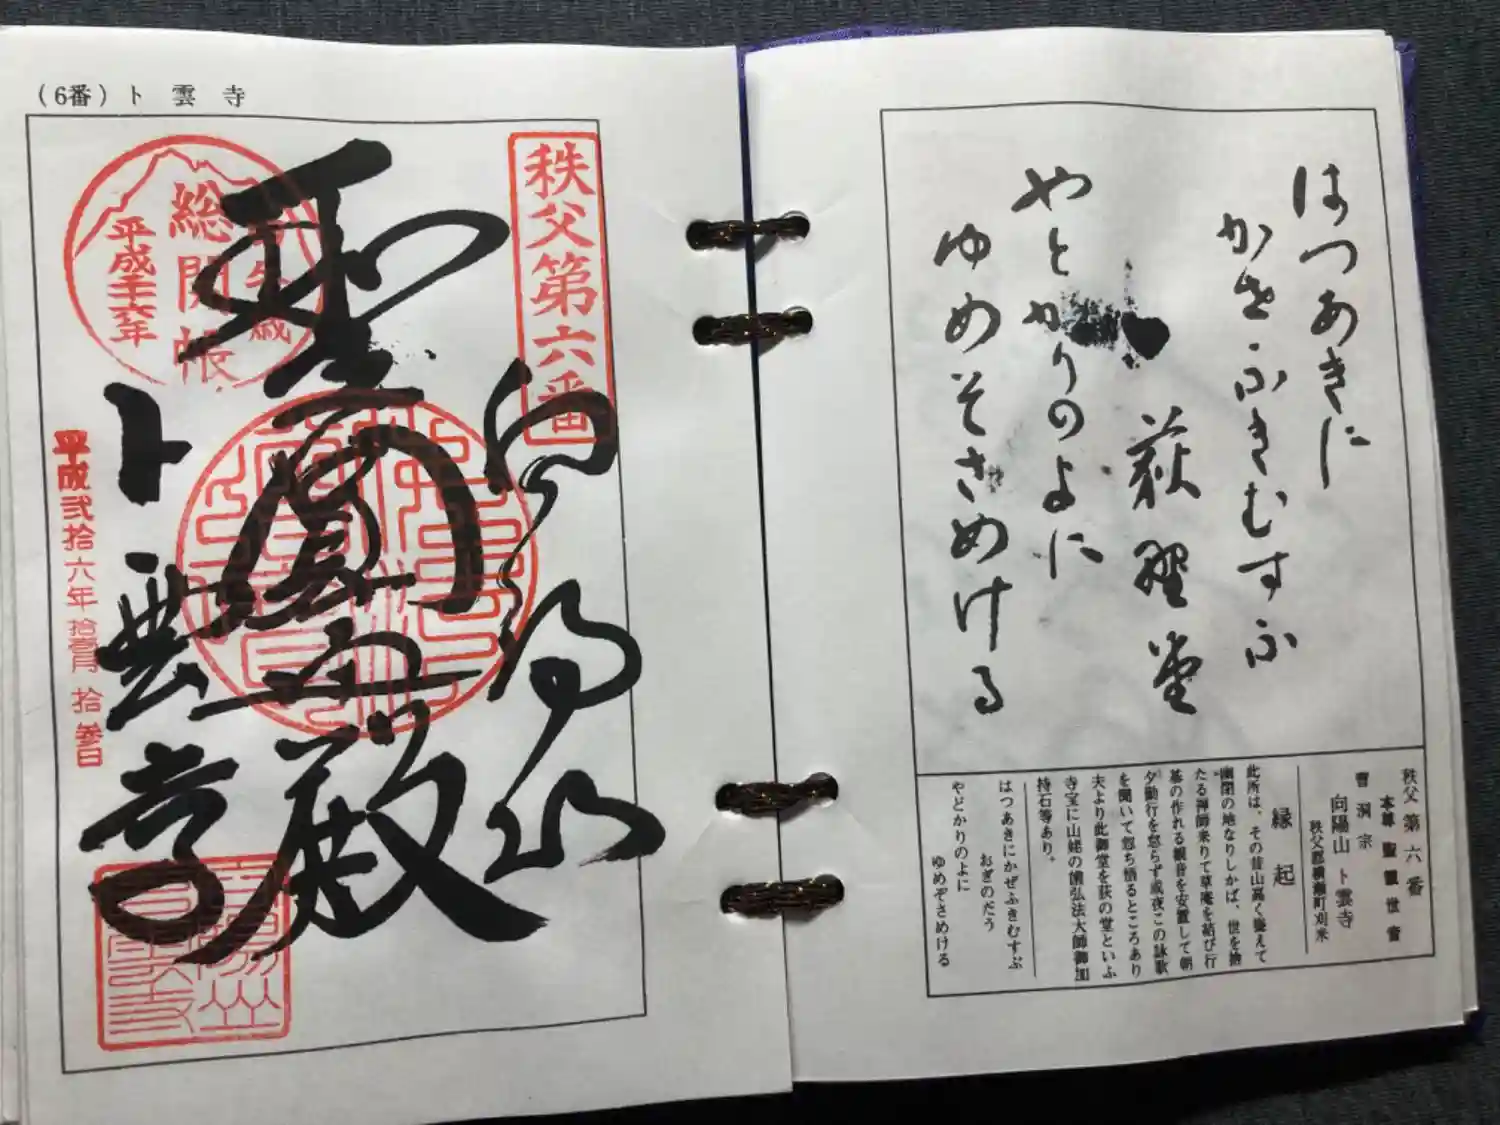 (6番) ト雲寺
秩父第六番
午歳
総開帳
平成二十六年
向陽山
聖閣殿
ト雲寺
平成弐拾六年拾壹月拾参日
はつあきに
かせふきむすふ
荻野堂
やとかりのよに
ゆめそさめける
秩父第六番
本尊 聖観世音
曹洞宗
向陽山 ト雲寺
秩父郡横瀬町刈米
縁起
此所は、その昔山高く聳えて
幽閉の地なりしかば、世を捨
たる禅師来りて草庵を結び行
基の作れる観音を安置して朝
夕勤行を怠らず或夜この詠歌
を聞いて忽ち悟るところあり
夫より此御堂を荻の堂といふ
寺宝に山姥の歯弘法大師御加
持石等あり。
はつあきにかぜふきむすぶ
おぎのだう
やどかりのよに
ゆめぞさめける